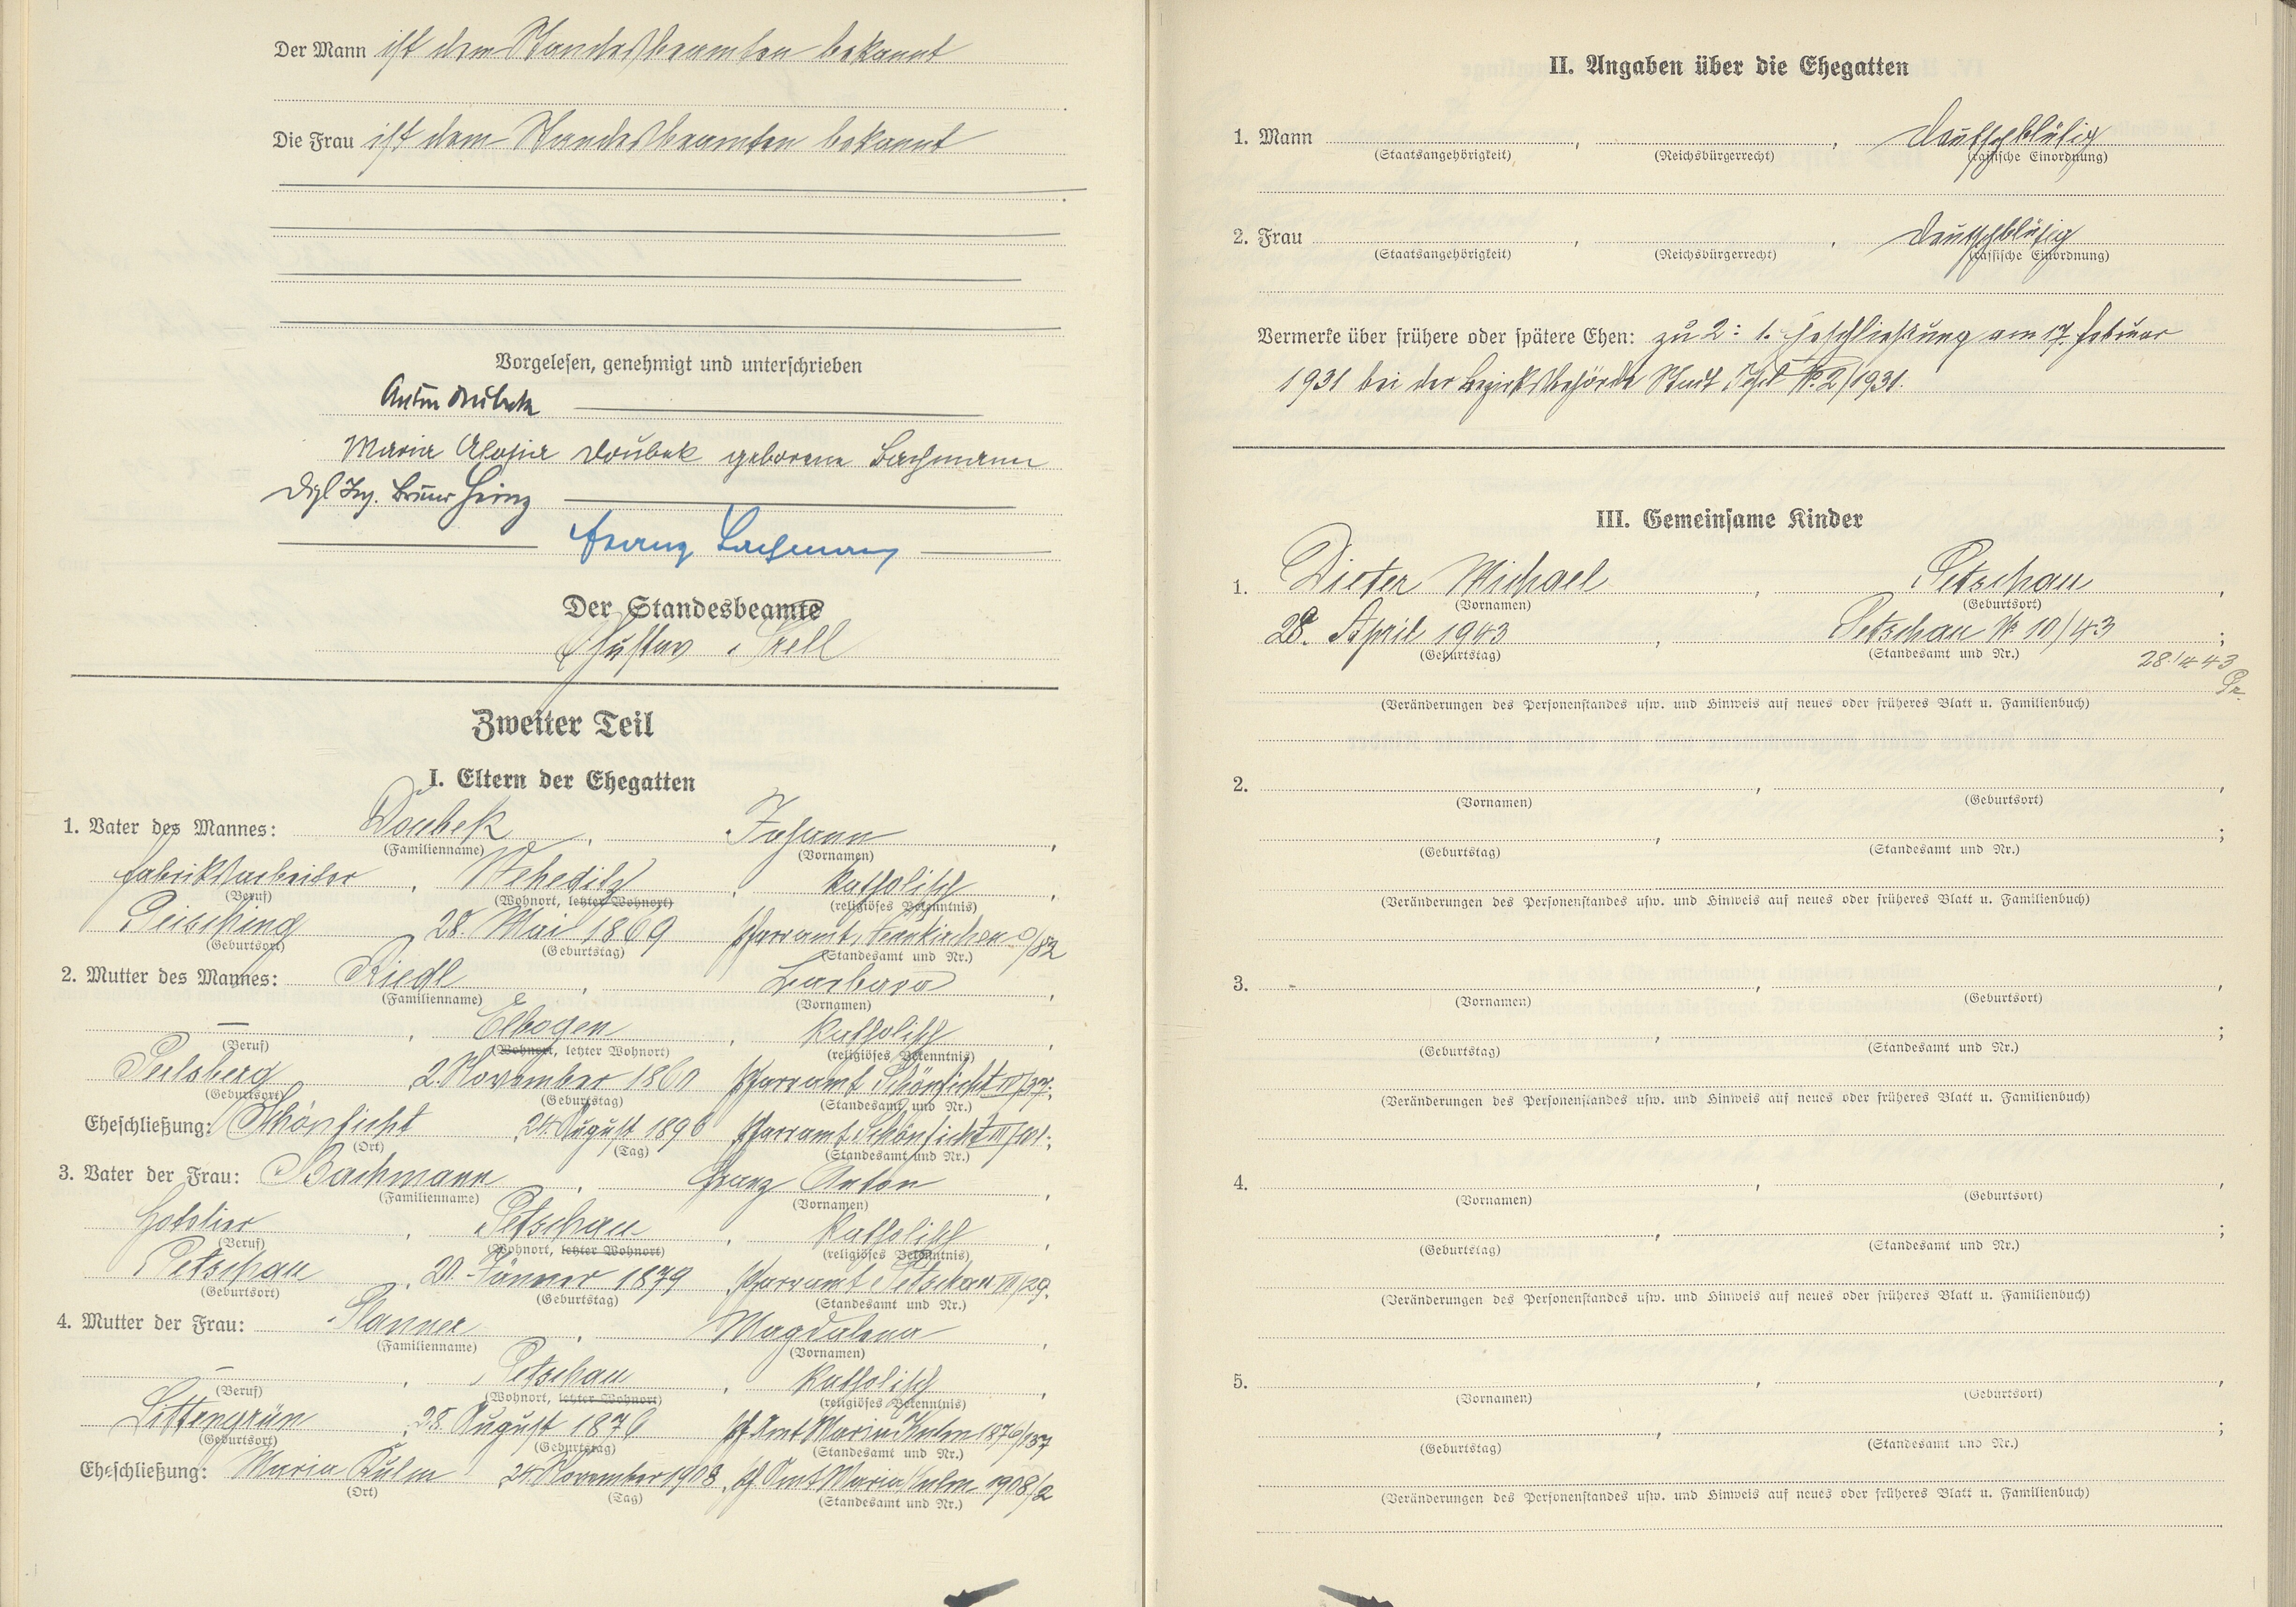 Der Mann ist dem Standesbeamten bekannt
Die Frau ist dem Standesbeamten bekannt
Vorgelesen, genehmigt und unterschrieben
Anton Doubek
Maria Aloisia Doubek geborene Bachmann
Dipl. Ing. Bruno Heinz
Franz Bachmann
Der Standesbeamte
Gustav
Zweiter Teil
I. Eltern der Ehegatten
1. Vater des Mannes: Doubek, Johann,
(Familienname) (Vornamen)
Fabriksarbeiter, Weheditz, katholisch,
(Beruf) (Wohnort, letzter Wohnort) (religiöses Bekenntnis)
Peisching 28. Mai 1869 Pfarramt Neunkirchen
(Geburtsort) (Geburtstag) (Standesamt und Nr.)
2. Mutter des Mannes: Riedl, Barbara,
(Familienname) (Vornamen)
—, Elbogen, katholisch,
(Beruf) (Wohnort, letzter Wohnort) (religiöses Bekenntnis)
2. November Pfarramt Schönficht
(Geburtsort) (Geburtstag) (Standesamt und Nr.)
Eheschließung: Schönficht 24. August 1896 Pfarramt Schönficht
(Ort) (Tag) (Standesamt und Nr.)
3. Vater der Frau: Bachmann, Franz Anton,
(Familienname) (Vornamen)
Hotelier, Petschau, katholisch,
(Beruf) (Wohnort, letzter Wohnort) (religiöses Bekenntnis)
Petschau, 20. Jänner 1879 Pfarramt Petschau
(Geburtsort) (Geburtstag) (Standesamt und Nr.)
4. Mutter der Frau: Planner, Magdalena,
(Familienname) (Vornamen)
—, Petschau, katholisch,
(Beruf) (Wohnort, letzter Wohnort) (religiöses Bekenntnis)
Littengrün, 28. August 1876 Pf. Amt Maria Kulm 1876/137
(Geburtsort) (Geburtstag) (Standesamt und Nr.)
Eheschließung: Maria Kulm 24. November 1908, Pf. Amt Maria Kulm 1908/2
(Ort) (Tag) (Standesamt und Nr.)
II. Angaben über die Ehegatten
1. Mann , , deutschblütig
(Staatsangehörigkeit) (Reichsbürgerrecht) (rassische Einordnung)
2. Frau , , deutschblütig
(Staatsangehörigkeit) (Reichsbürgerrecht) (rassische Einordnung)
Vermerke über frühere oder spätere Ehen: zu 2: 1. Eheschließung am 17. Februar
1931 bei der Bezirksbehörde Stadt № 2/1931.
III. Gemeinsame Kinder
1. Dieter Michael, Petschau,
(Vornamen) (Geburtsort)
28. April 1943, Petschau № 10/43;
(Geburtstag) (Standesamt und Nr.)
(Veränderungen des Personenstandes usw. und Hinweis auf neues oder früheres Blatt u. Familienbuch)
2. , ,
(Vornamen) (Geburtsort)
, ;
(Geburtstag) (Standesamt und Nr.)
(Veränderungen des Personenstandes usw. und Hinweis auf neues oder früheres Blatt u. Familienbuch)
3. , ,
(Vornamen) (Geburtsort)
, ;
(Geburtstag) (Standesamt und Nr.)
(Veränderungen des Personenstandes usw. und Hinweis auf neues oder früheres Blatt u. Familienbuch)
4. , ,
(Vornamen) (Geburtsort)
, ;
(Geburtstag) (Standesamt und Nr.)
(Veränderungen des Personenstandes usw. und Hinweis auf neues oder früheres Blatt u. Familienbuch)
5. , ,
(Vornamen) (Geburtsort)
, ;
(Geburtstag) (Standesamt und Nr.)
(Veränderungen des Personenstandes usw. und Hinweis auf neues oder früheres Blatt u. Familienbuch)